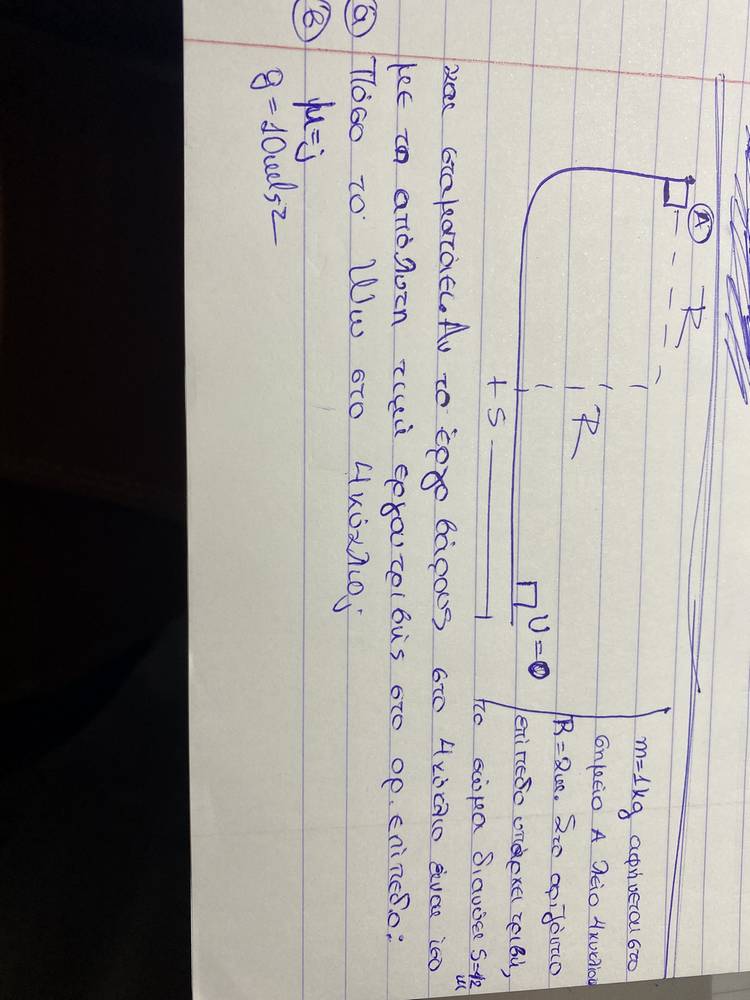 m=1kg αφήνεται στο
σημείο Α λείο 4κυκλίου
R=2m. Στο οριζόντιο
επίπεδο υπάρχει τριβή,
το σώμα διανύει S=42
m
A
R
R
S
U=0
και σταματάει. Αν το έργο βάρους στο 4κύκλιο είναι ίσο
με τη απόλυτη τιμή έργου τριβής στο ορ. επίπεδο:
a Πόσο το Ww στο 4κύκλιο;
b μ=;
g=10m/s2